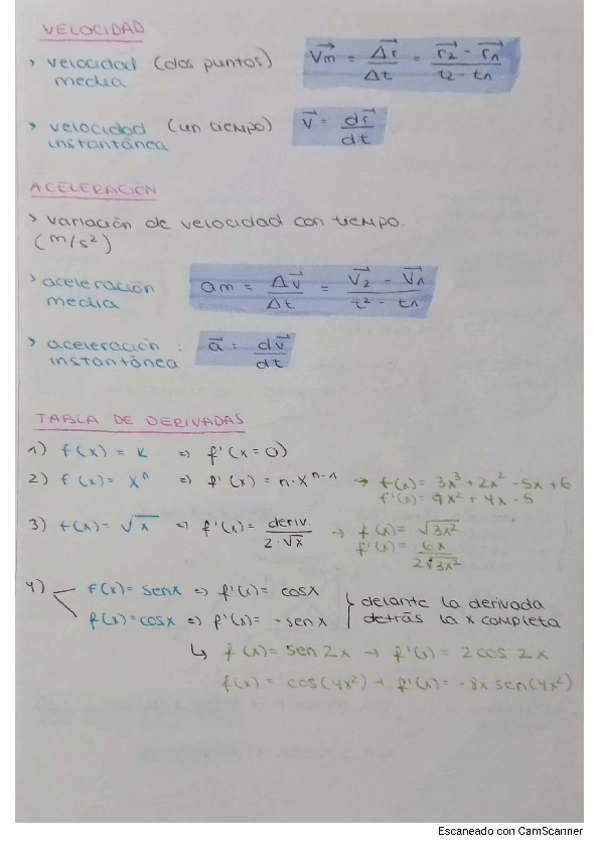 VELOCIDAD
> velocidad media (dos puntos) Vm = Δr / Δt = r2 - r1 / t2 - t1
> velocidad instantánea (un tiempo) v = dr / dt
ACELERACIÓN
> variación de velocidad con tiempo.
(m/s²)
> aceleración media am = Δv / Δt = V2 - V1 / t² - t1
> aceleración instantánea : a = dv / dt
TABLA DE DERIVADAS
1) f(x) = K => f'(x=0)
2) f(x) = xⁿ => f'(x) = n·xⁿ⁻¹ → f(x) = 3x³ + 2x² - 5x + 6
f'(x) = 9x² + 4x - 5
3) f(x) = √x => f'(x) = deriv. / 2·√x → f(x) = √3x²
f'(x) = 6x / 2√3x²
4) f(x) = senx => f'(x) = cosx } delante la derivada
f(x) = cosx => f'(x) = -senx } detrás la x completa
↳ f(x) = sen 2x → f'(x) = 2 cos 2x
f(x) = cos(4x²) → f'(x) = -8x sen(4x²)
Escaneado con CamScanner